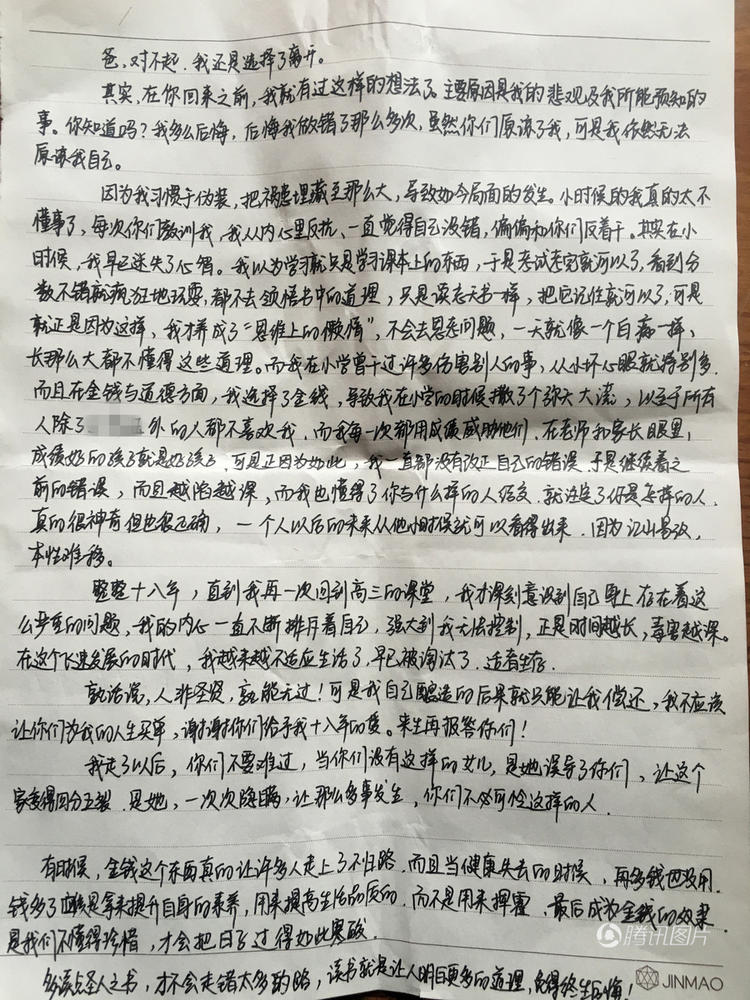 爸，对不起，我还是选择了离开。
其实，在你回来之前，我就有过这样的想法了，主要原因是我的悲观及我所能预知的
事。你知道吗？我多么后悔，后悔我做错了那么多次，虽然你们原谅了我，可是我依然无法
原谅我自己。
因为我习惯于伪装，把祸患埋藏至那么大，导致如今局面的发生。小时候的我真的太不
懂事了，每次你们教训我，我从内心里反抗，一直觉得自己没错，偏偏和你们反着干。其实在小
时候，我早已迷失了心智。我以为学习就只是学习课本上的东西，于是考试考完就可以了，看到分
数不错就疯狂地玩耍，都不去领悟书中的道理，只是读老天书一样，把它记住就可以了，可是
就正是因为这样，我才养成了“思维上的懒惰”，不会去思考问题，一天就像一个白痴一样，
长那么大都不懂得这些道理。而我在小学曾干过许多伤害别人的事，从小坏心眼就特别多，
而且在金钱与道德方面，我选择了金钱，导致我在小学的时候撒了个弥天大谎，以至于所有
人除了 外的人都不喜欢我，而我每一次都用成绩威胁他们，在老师和家长眼里，
成绩好的孩子就是好孩子，可是正因为如此，我一直都没有改正自己的错误，于是继续着之
前的错误，而且越陷越深，而我也懂得了你与什么样的人结交，就注定了你是怎样的人，
真的很神奇但也很正确，一个人以后的未来从他小时候就可以看得出来，因为江山易改，
本性难移。
整整十八年，直到我再一次回到高三的课堂，我才深刻意识到自己身上存在着这
么严重的问题，我的内心一直不断排斥着自己，强大到我无法控制，正是时间越长，毒害越深。
在这个飞速发展的时代，我越来越不适应生活了，早已被淘汰了，适者生存。
俗话说，人非圣贤，孰能无过！可是我自己酿造的后果就只能让我偿还，我不应该
让你们为我的人生买单，谢谢你们给予我十八年的爱。来生再报答你们！
我走了以后，你们不要难过，当你们没有这样的女儿，是她误导了你们，让这个
家变得四分五裂，是她，一次次隐瞒，让那么多事发生，你们不必可怜这样的人。
有时候，金钱这个东西真的让许多人走上了不归路，而且当健康失去的时候，再多钱也没用，
钱多了应该是拿来提升自身的素养，用来提高生活品质的，而不是用来挥霍，最后成为金钱的奴隶，
是我们不懂得珍惜，才会把日子过得如此寒碜。
多读点圣人之书，才不会走错太多的路，读书就是让人明白更多的道理，免得终生后悔！
腾讯图片
JINMAO